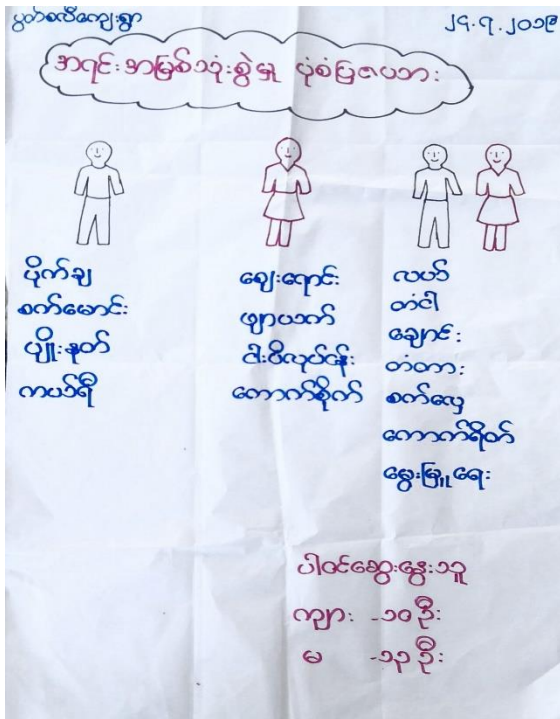 ပွတ်စလီကျေးရွာ
၂၄.၇.၂၀၁၉
အရင်းအမြစ်သုံးစွဲမှု ပုံစံပြဇယား
ပိုက်ချ
စက်မောင်း
ပျိုးနုတ်
ကပ်ရီ
ဈေးရောင်း
ဖျာယက်
ငါးပိလုပ်ငန်း
ကောက်စိုက်
လယ်
တံငါ
ချောင်း
တံတား
စက်လှေ
ကောက်ရိတ်
မွေးမြူရေး
ပါဝင်ဆွေးနွေးသူ
ကျား -၁၀ဦး
မ -၁၃ဦး